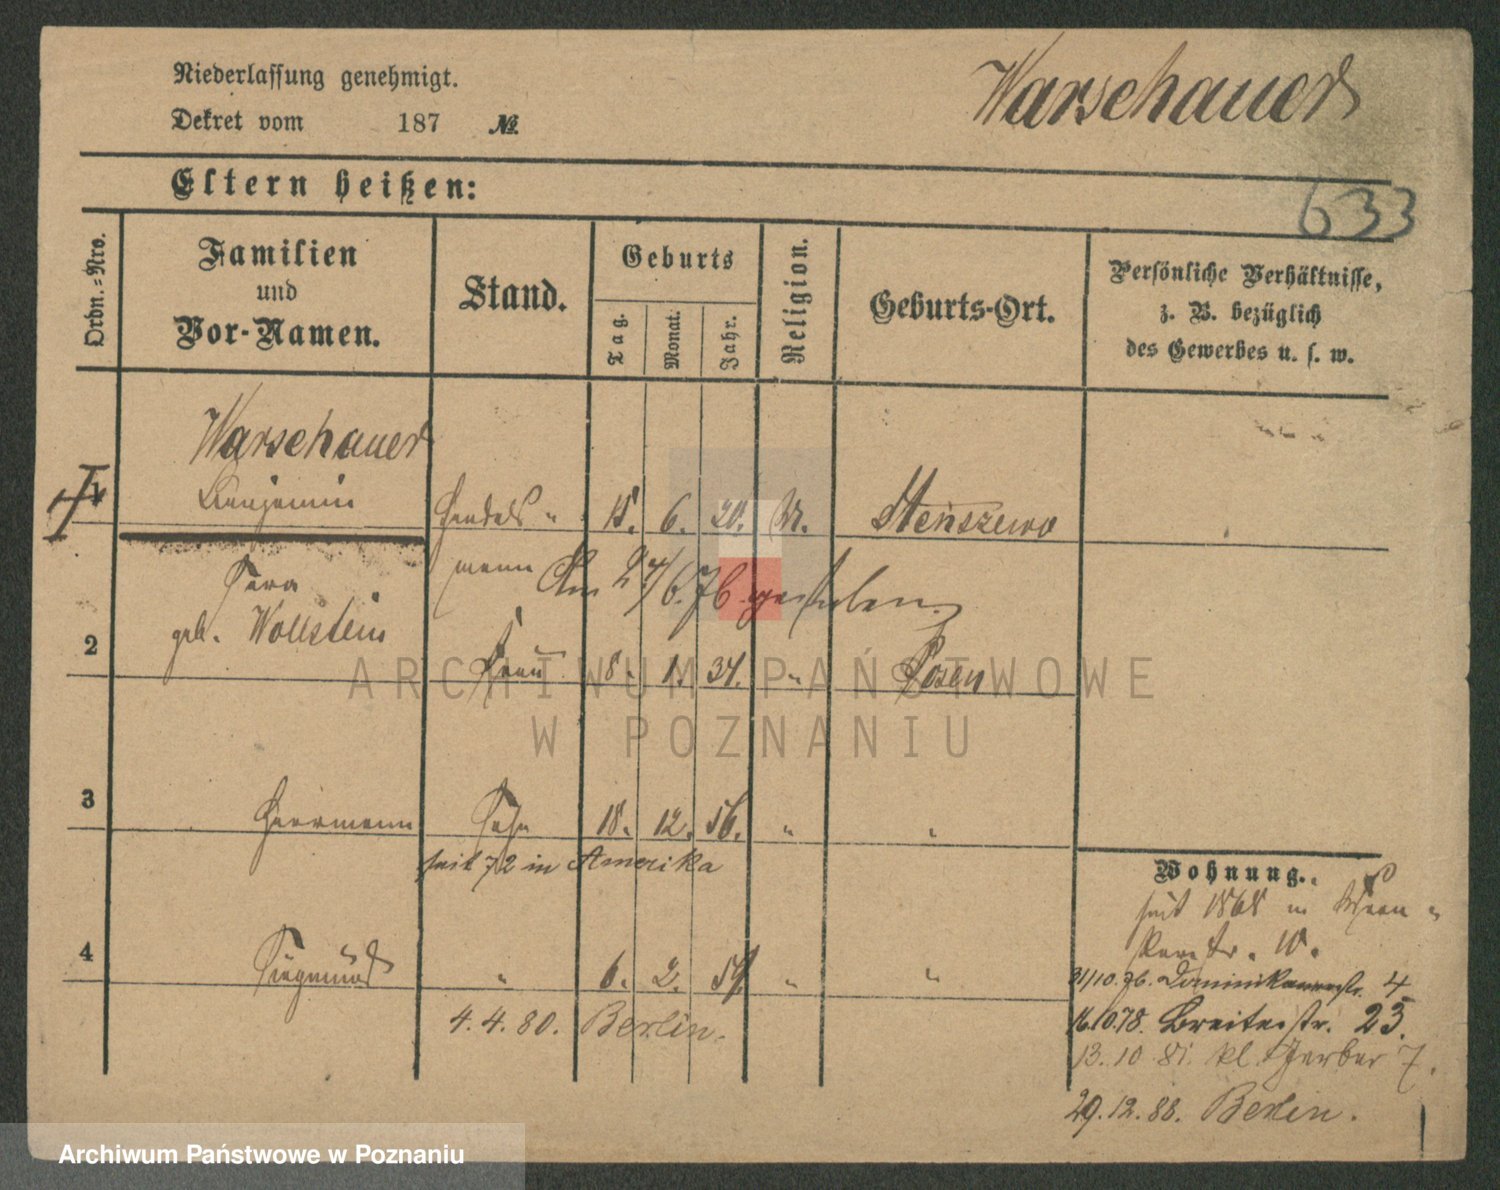 Niederlassung genehmigt.
Warschauer
Dekret vom 187 №
Eltern heißen:
633
Ordn.-Nro.
Familien
und
Vor-Namen.
Stand.
Geburts
Tag.
Monat.
Jahr.
Religion.
Geburts-Ort.
Persönliche Verhältnisse,
z. B. bezüglich
des Gewerbes u. s. w.
Warschauer
1 Benjamin Handels- 15. 6. 20. M. Stenszewo
mann Am 27/6.76 gestorben.
Sara
2 geb. Wollstein Frau 8. 1. 34. " Posen
ARCHIWUM PAŃSTWOWE
W POZNANIU
3 Herrmann Sohn 18. 12. 56. " "
seit 72 in Amerika
Wohnung.
seit 1868 in
str. 10.
4 Siegmund " 6. 2. 59. " "
31/10.76. Dominikanerstr. 4
4.4.80. Berlin.
16.10.78. Breitestr. 23.
13.10.81. kl. Gerber 7.
29.12.88. Berlin.
Archiwum Państwowe w Poznaniu